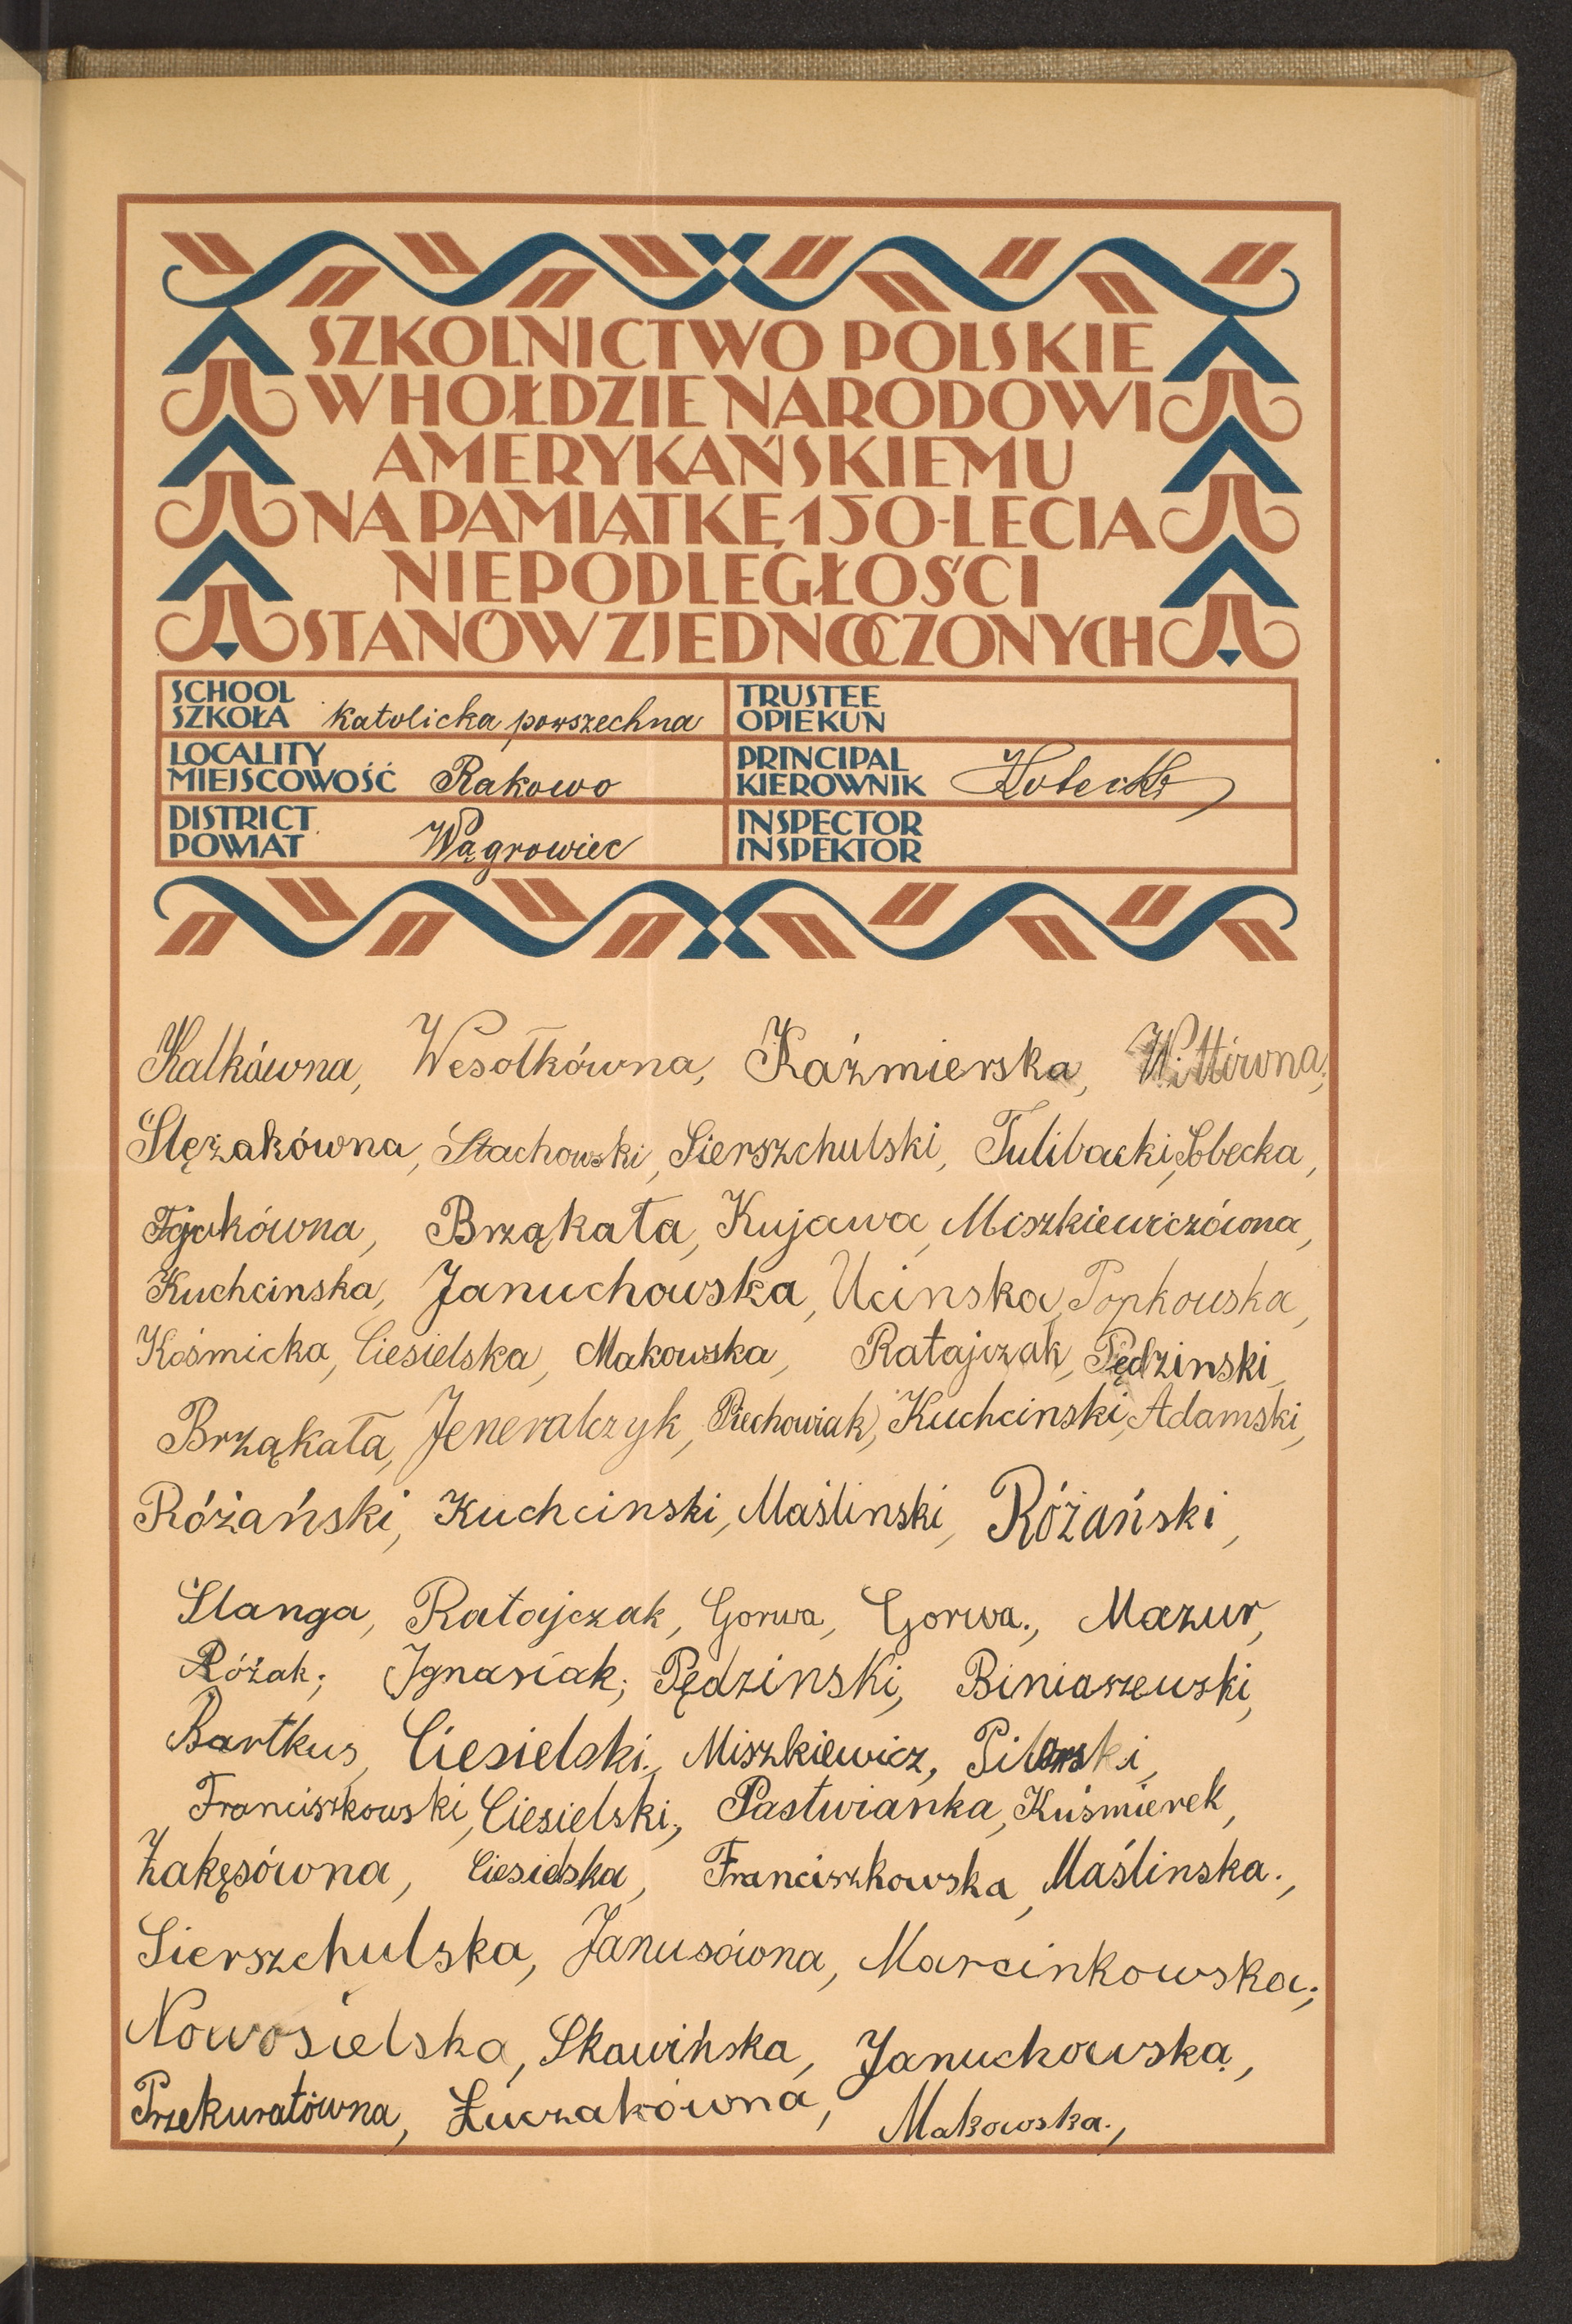 SZKOLNICTWO POLSKIE
W HOŁDZIE NARODOWI
AMERYKAŃSKIEMU
NA PAMIĄTKĘ 150-LECIA
NIEPODLEGŁOŚCI
STANÓW ZJEDNOCZONYCH
SCHOOL
SZKOŁA Katolicka powszechna
TRUSTEE
OPIEKUN
LOCALITY
MIEJSCOWOŚĆ Rakowo
PRINCIPAL
KIEROWNIK
DISTRICT
POWIAT Wągrowiec
INSPECTOR
INSPEKTOR
Kalkówna, Wesołkówna, Kaźmierska, Wittówna,
Slężakówna, Stachowski, Sierszchulski, Tulibacki, Sobecka,
Brząkała, Kujawa, Miszkiewiczówna,
Kuchcinska, Januchowska, Ucinska, Popkowska,
Kośmicka, Ciesielska, Makowska, Ratajczak, Pędzinski,
Brząkała, Jeneralczyk, Piechowiak, Kuchcinski, Adamski,
Różański, Kuchcinski, Maślinski, Różański,
Slanga, Ratajczak, Gorwa, Gorwa., Mazur,
Różak; Ignasiak; Pędzinski, Biniaszewski,
Bartkus, Ciesielski., Miszkiewicz, Pilarski,
Franciszkowski, Ciesielski., Pastwianka, Kuśmierek,
Żakęsówna, Ciesielska, Franciszkowska, Maślinska.,
Sierszchulska, Janusówna, Marcinkowska.;
Nowosielska, Skawińska, Januchowska,
Przekuratówna, Łuczakówna, Makowska.,